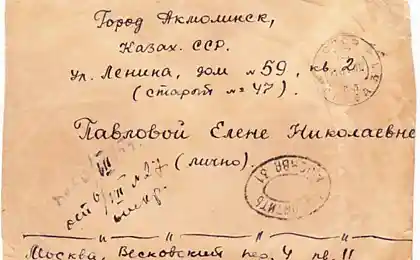 Город Акмолинск,
Казах. ССР.
Ул. Ленина, дом № 59, кв. 2
(старый № 47).
Павловой Елене Николаевне
(лично).
МОСКВА 31
Москва, Весковский пер. 4 кв. 11